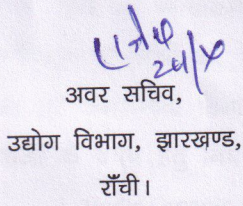 अवर सचिव,
उद्योग विभाग, झारखण्ड,
राँची।